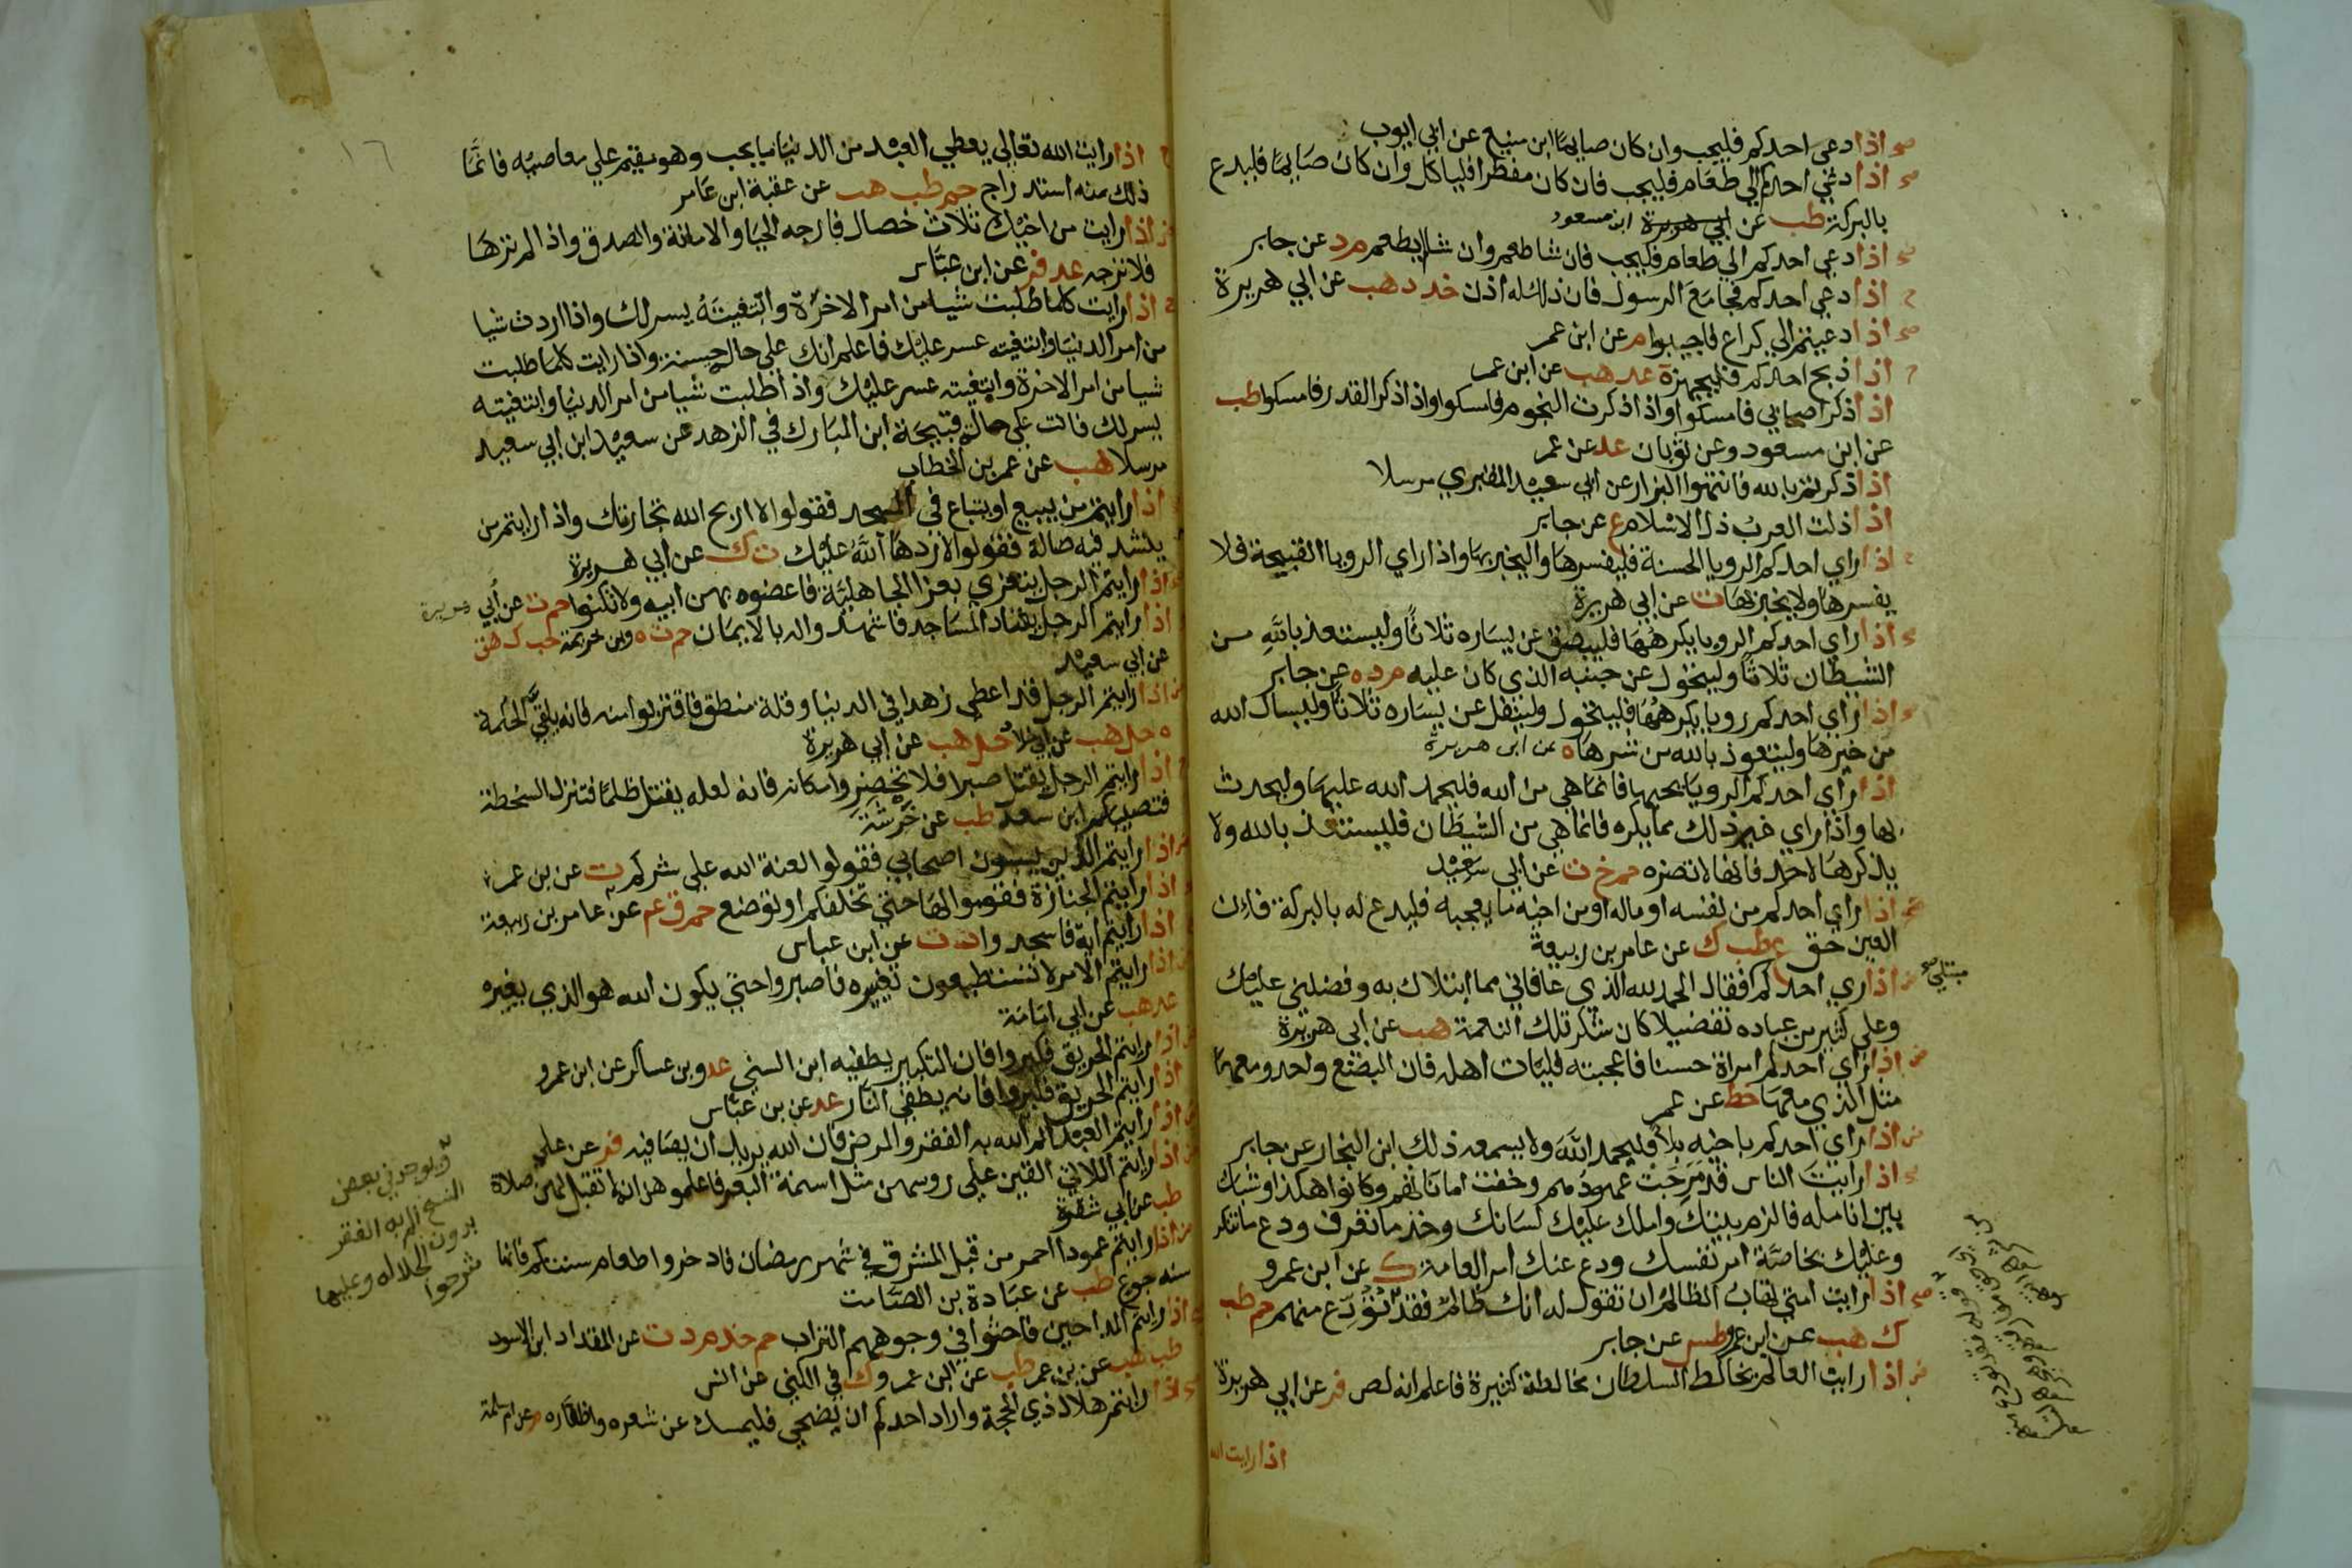 صح اذا دعي احدكم فليجب وان كان صايما ابن منيع عن ابي ايوب
صح اذا دعي احدكم الي طعام فليجب فان كان مفطرا فلياكل وان كان صايما فليدع
بالبركة طب عن ابي هريرة ابن مسعود
صح اذا دعي احدكم الي طعام فليجب فان شا طعم وان شا لم يطعم م د عن جابر
ح اذا دعي احدكم فجا مع الرسول فان ذلك له اذن خد د هب عن ابي هريرة
صح اذا دعيتم الي كراع فاجيبوا م عن ابن عمر
ح اذا ذبح احدكم فليجهز ة عد هب عن ابن عمر
اذا ذكر اصحابي فامسكوا واذا ذكرت النجوم فامسكوا واذا ذكر القدر فامسكوا طب
عن ابن مسعود وعن ثوبان عد عن عمر
اذا ذكرتم بالله فانتهوا البزار عن ابي سعيد المقبري مرسلا
اذا ذلت العرب ذل الاسلام ع عن جابر
اذا راي احدكم الرويا الحسنة فليفسرها واليخبر بها واذا راي الرويا القبيحة فلا
يفسرها ولا يخبر بها ت عن ابي هريرة
اذا راي احدكم الرويا يكرهها فليبصق عن يساره ثلاثا وليستعذ بالله من
الشيطان ثلاثا وليتحول عن جنبه الذي كان عليه م د ه عن جابر
اذا راي احدكم رويا يكرهها فليتحول وليتفل عن يساره ثلاثا وليسال الله
من خيرها وليتعوذ بالله من شرها ه عن ابي هريرة
اذا راي احدكم الرويا يحبها فانما هي من الله فليحمد الله عليها وليحدث
بها واذا راي غير ذلك مما يكره فانما هي من الشيطان فليستعذ بالله ولا
يذكرها لاحد فانها لا تضره حم خ ت عن ابي سعيد
اذا راي احدكم من نفسه او ماله او من اخيه ما يعجبه فليدع له بالبركة فان
العين حق ع طب ك عن عامر بن ربيعة
اذا راي احدكم فقال الحمد لله الذي عافاني مما ابتلاك به وفضلني عليك
مبتلي صح
وعلي كثير من عباده تفضيلا كان شكر تلك النعمة هب عن ابي هريرة
اذا راي احدكم امراة حسنا فاعجبته فليات اهله فان البضع واحد ومعها
مثل الذي معها خط عن عمر
اذا راي احدكم باخيه بلا فليحمد الله ولا يسمعه ذلك ابن النجار عن جابر
اذا رايت الناس قد مرجت عهودهم وخفت اماناتهم وكانوا هكذا وشبك
بين انامله فالزم بيتك واملك عليك لسانك وخذ ما تعرف ودع ما تنكر
وعليك بخاصة امر نفسك ودع عنك امر العامة ك عن ابن عمرو
صح اذا رايت امتي تهاب الظالم ان تقول له انك ظالم فقد تودع منهم حم طب
ك هب عن ابن عمرو طس عن جابر
اذا رايت العالم يخالط السلطان مخالطة كثيرة فاعلم انه لص فر عن ابي هريرة
اذا رايت الله
١٦
اذا رايت الله تعالي يعطي العبد من الدنيا ما يحب وهو مقيم علي معاصيه فانما
ذلك منه استدراج حم طب هب عن عقبة ابن عامر
اذا رايت من اخيك ثلاث خصال فارجه الحيا والامانة والصدق واذا لم ترها
فلا ترجه عد فر عن ابن عباس
اذا رايت كلما طلبت شيا من امر الاخرة وابتغيته يسر لك واذا اردت شيا
من امر الدنيا وابتغيته عسر عليك فاعلم انك علي حال حسنة واذا رايت كلما طلبت
شيا من امر الاخرة وابتغيته عسر عليك واذا طلبت شيا من امر الدنيا وابتغيته
يسر لك فانت علي حالة قبيحة ابن المبارك في الزهد عن سعيد ابن ابي سعيد
مرسلا هب عن عمر بن الخطاب
اذا رايتم من يبيع او يبتاع في المسجد فقولوا لا اربح الله تجارتك واذا رايتم من
ينشد فيه ضالة فقولوا لا ردها الله عليك ت ك عن ابي هريرة
اذا رايتم الرجل يتعزي بعزا الجاهلية فاعضوه بهن ابيه ولا تكنوا حم ت عن أبي هريرة
اذا رايتم الرجل يعتاد المساجد فاشهدوا له بالايمان حم ت ه وبن خزيمة حب ك هق
عن ابي سعيد
اذا رايتم الرجل قد اعطي زهدا في الدنيا وقلة منطق فاقتربوا منه فانه يلقي الحكمة
ه حل هب عن ابي خلاد حل هب عن ابي هريرة
اذا رايتم الرجل يقتل صبرا فلا تحضروا مكانه فانه لعله يقتل ظلما فتنزل السخطة
فتصيبكم ابن سعد طب عن خرشة
اذا رايتم الذين يسبون اصحابي فقولوا لعنة الله علي شركم ت عن بن عمر
اذا رايتم الجنازة فقوموا لها حتي تخلفكم او توضع حم ق عم عن عامر بن ربيعة
اذا رايتم اية فاسجدوا د ت عن ابن عباس
اذا رايتم الامر لا تستطيعون تغييره فاصبروا حتي يكون الله هو الذي يغيره
عد هب عن ابي امامة
اذا رايتم الحريق فكبروا فان التكبير يطفيه ابن السني عد وبن عساكر عن ابن عمرو
اذا رايتم الحريق فكبروا فانه يطفي النار عد عن بن عباس
اذا رايتم العبد الم الله به الفقر والمرض فان الله يريد ان يصافيه فر عن علي
اذا رايتم اللاتي القين علي روسهن مثل اسنمة البعر فاعلموهن انه لا تقبل لهن صلاة
طب عن ابي شقرة
اذا رايتم عمودا احمر من قبل المشرق في شهر رمضان فادخروا طعام سنتكم فانها
سنة جوع طب عن عبادة بن الصامت
اذا رايتم المداحين فاحثوا في وجوههم التراب حم خد م د ت عن المقداد ابن الاسود
طب هب عن بن عمر طب عن ابن عمرو ك في الكني عن انس
اذا رايتم هلال ذي الحجة واراد احدكم ان يضحي فليمسك عن شعره واظفاره م عن ام سلمة
ويوجد في بعض
النسخ الم به الفقر
بدون الجلاله وعليها
شرحوا